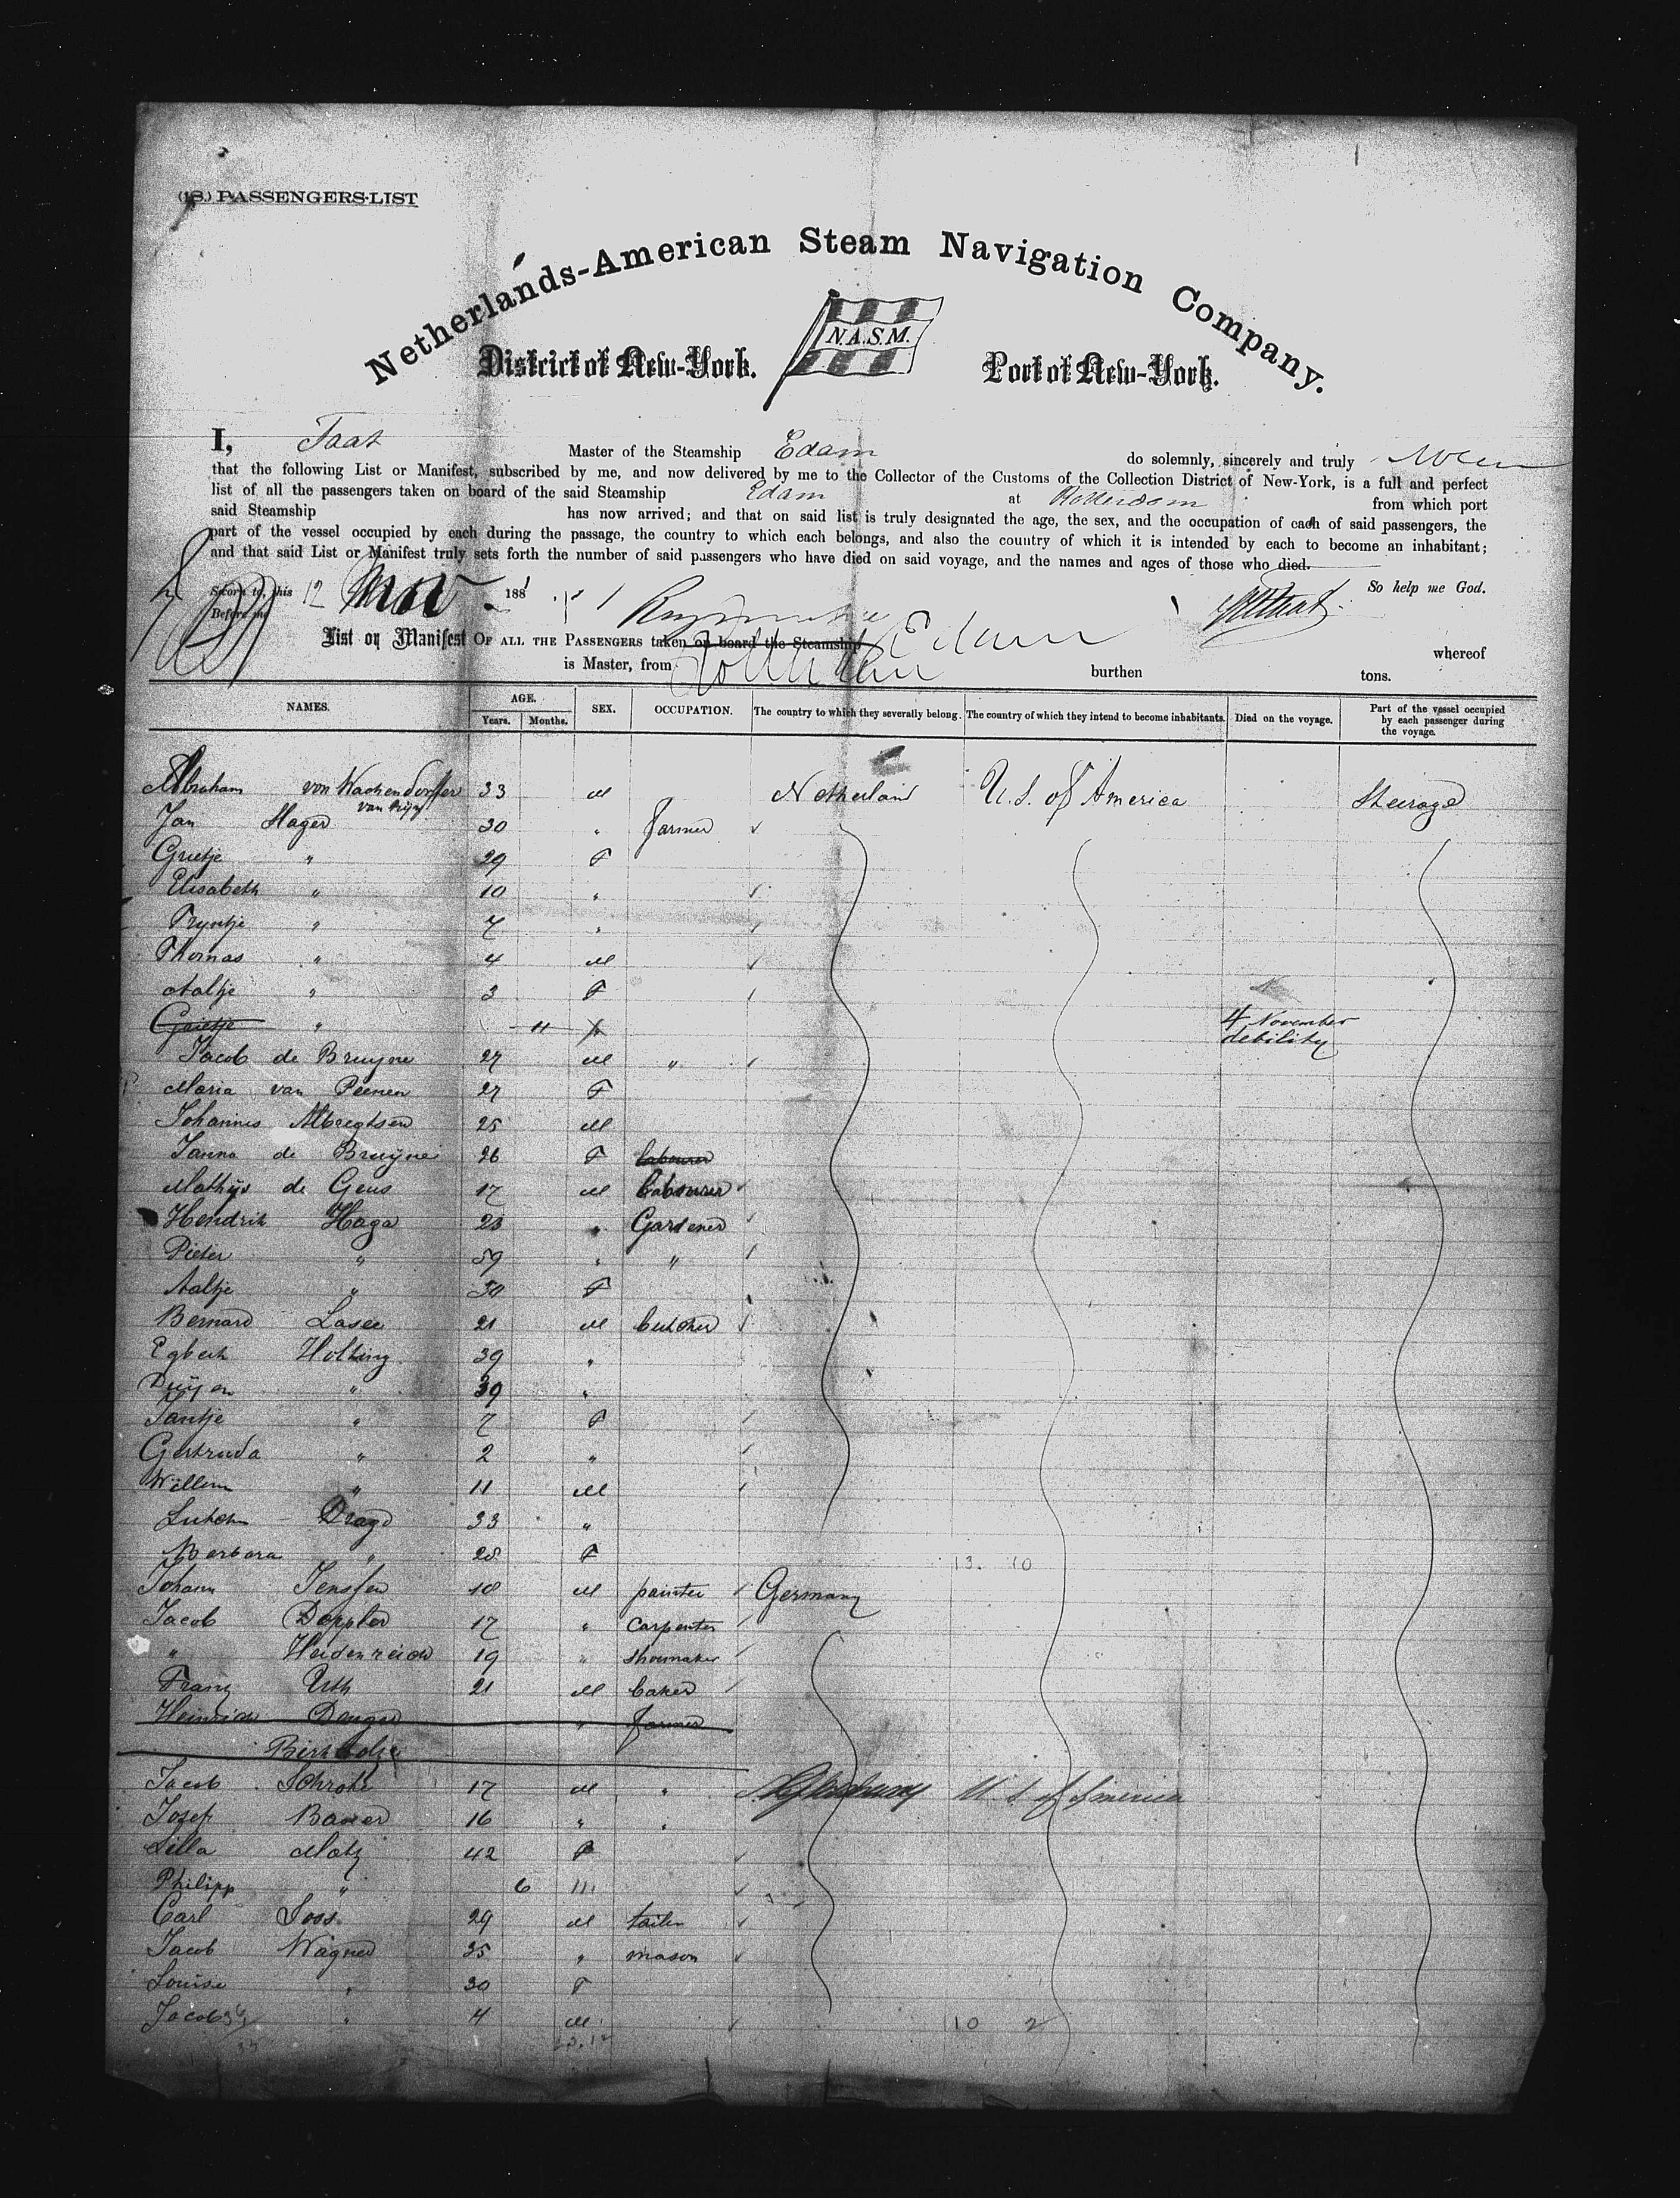 (18.) PASSENGERS-LIST
Netherlands-American Steam Navigation Company.
N.A.S.M.
District of New-York. Port of New-York.
I, Taat Master of the Steamship Edam do solemnly, sincerely and truly
that the following List or Manifest, subscribed by me, and now delivered by me to the Collector of the Customs of the Collection District of New-York, is a full and perfect
list of all the passengers taken on board of the said Steamship Edam at Rotterdam from which port
said Steamship has now arrived; and that on said list is truly designated the age, the sex, and the occupation of each of said passengers, the
part of the vessel occupied by each during the passage, the country to which each belongs, and also the country of which it is intended by each to become an inhabitant;
and that said List or Manifest truly sets forth the number of said passengers who have died on said voyage, and the names and ages of those who died.
So help me God.
Sworn to, this 12 Nov 1881
Before me
List or Manifest OF ALL THE PASSENGERS taken on board the Steamship Edam whereof
is Master, from Rotterdam burthen tons.
NAMES. AGE. Years. Months. SEX. OCCUPATION. The country to which they severally belong. The country of which they intend to become inhabitants. Died on the voyage. Part of the vessel occupied by each passenger during the voyage.
Abraham von Wachendorffer 33 M Netherland U.S. of America Steerage
van Rijn
Jan Hager 30 " farmer
Grietje " 29 F
Elisabeth " 10 "
Tryntje " 7 "
Thomas " 4 M
Aaltje " 3 F
Grietje " 11 4 November
debility
Jacob de Bruyne 27 M "
Maria van Peenen 27 F
Johannis Albregtsen 25 M
Janna de Bruijne 26 F labourer
Mathijs de Geus 17 M labourer
Hendrik Haga 23 " Gardener
Pieter " 59 " "
Aaltje " 50 F
Bernard Lasee 21 M butcher
Egbert Holting 39 "
" 39 "
Jantje " 7 F
Gertruda " 2 "
Willem " 11 M
Drago 33 "
Barbara " 28 F
13. 10
Johann Jensfen 18 M painter Germany
Jacob Doppler 17 " carpenter
" Heidenreich 19 " shoemaker
Franz Uth 21 M baker
Heinrich " farmer
Jacob Schrohe 17 M " U.S. of America
Josef Bauer 16 " "
Lilla Matz 42 F
Philipp " 6 m
Carl Joos 29 M tailer
Jacob Wagner 35 " mason
Louise " 30 F
Jacob " 4 M
10 2